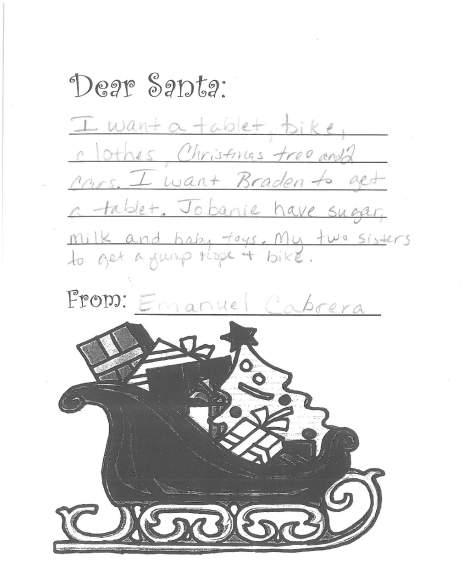 Dear Santa:
I want a tablet, bike,
clothes, Christmas tree and 2
cars. I want Braden to get
a tablet. Jobanie have sugar,
milk and baby toys. My two sisters
to get a jump rope + bike.
From: Emanuel Cabrera